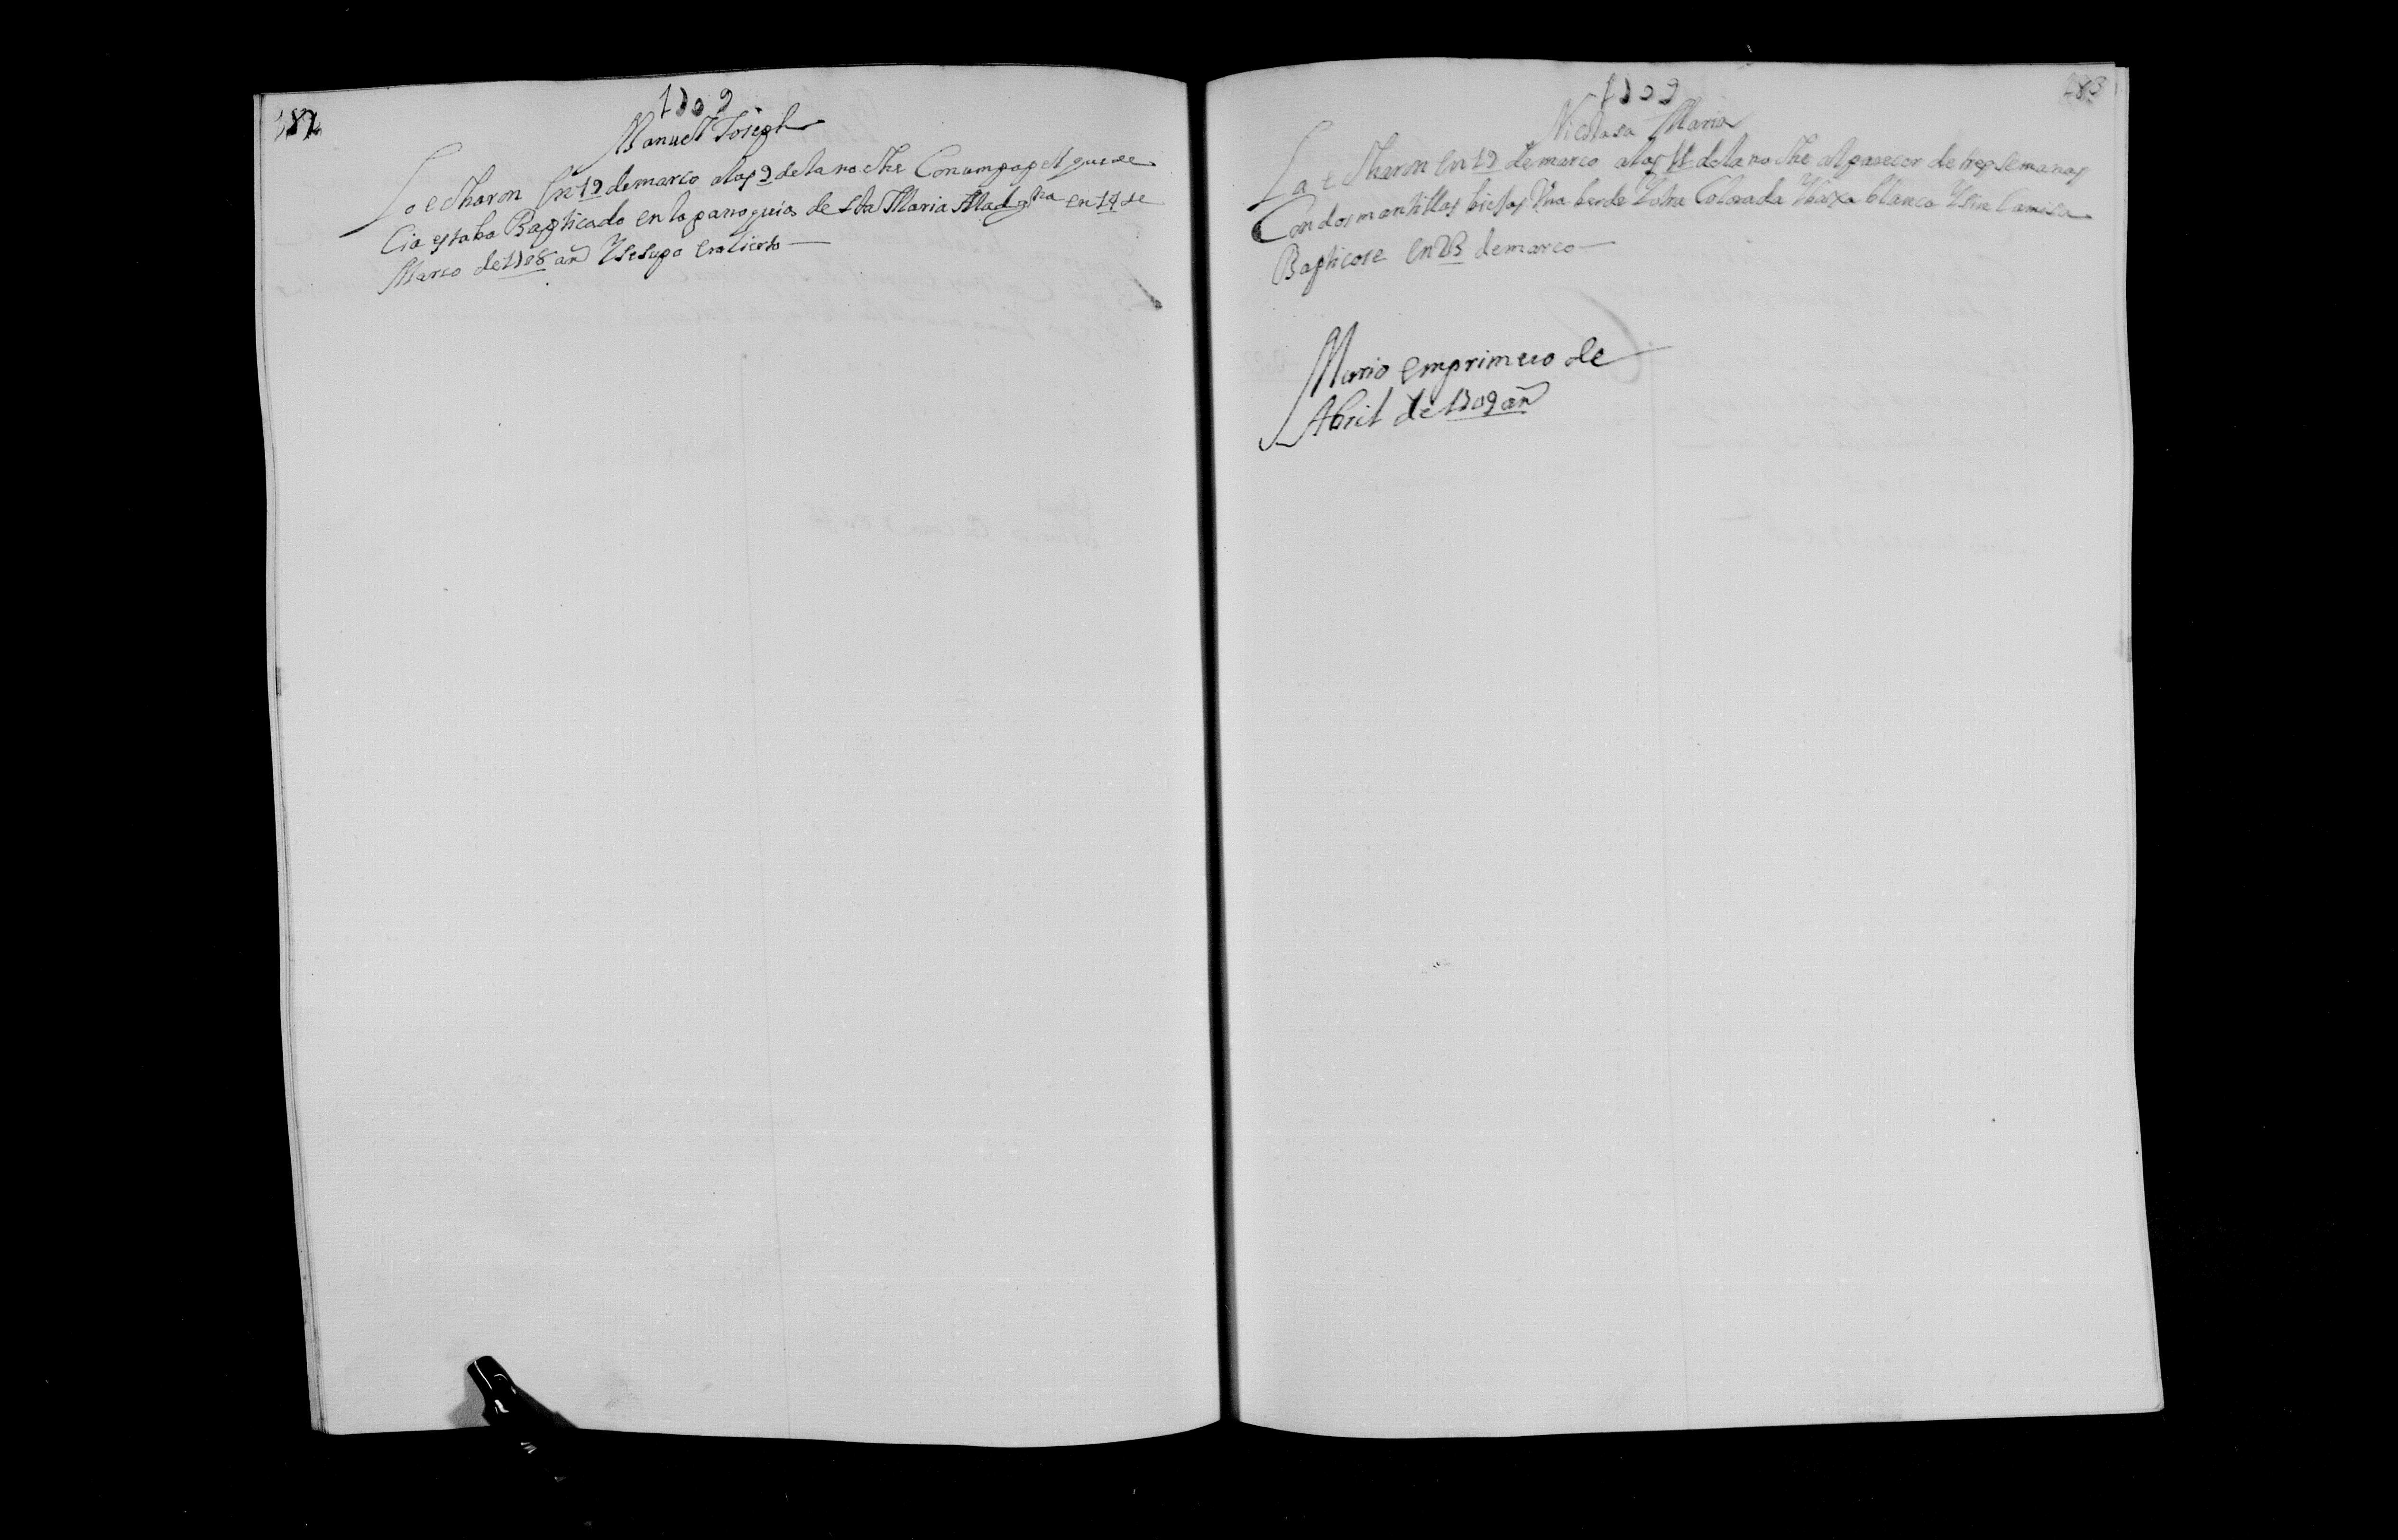 182
1709
Manuel Joseph
Lo echaron en 19 de março a las 9 de la noche Con um papel que de
Cia estaba Baptiçado en la paroquia de Sta Maria Madgna en 14 de
Março de 1708 añ Y se supo era cierto
183
1709
Nicolasa Maria
La echaron en 19 de março a las 11 de la noche al parecer de tres semanas
Con dos mantillas biejas Una berde Y otra Colorada Y faxa blanca Y sin Camisa
Bapticose en 23 de março
Murio em primero de
Abril de 1709 añ